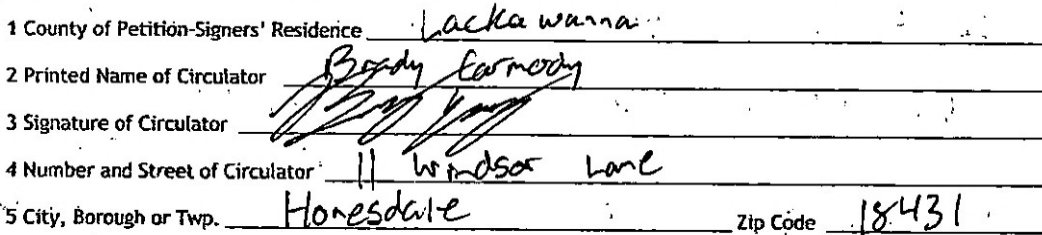 1 County of Petition-Signers' Residence Lackawanna
2 Printed Name of Circulator Brady Carmody
3 Signature of Circulator
4 Number and Street of Circulator 11 Windsor Lane
5 City, Borough or Twp. Honesdale Zip Code 18431